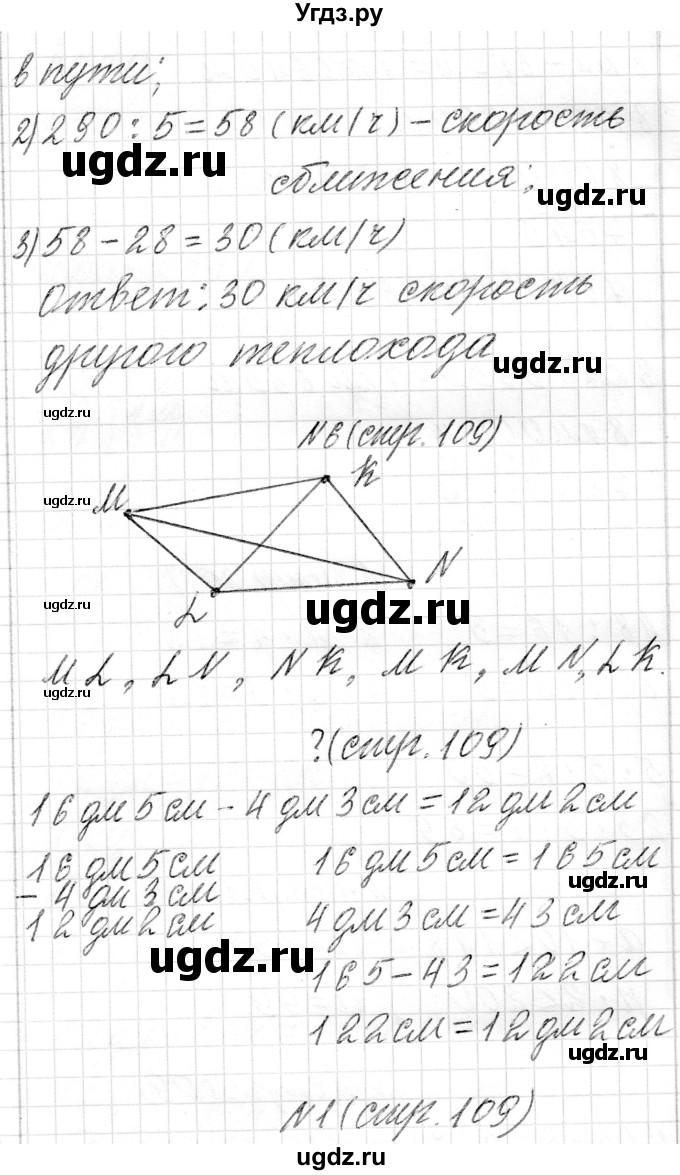 Угдз.ру
в пути;
2) 290 : 5 = 58 (км/ч) – скорость
ugdz.ru
сближения;
ugdz.ru
3) 58 – 28 = 30 (км/ч)
ответ: 30 км/ч скорость
другого теплохода
ugdz.ru
ugdz.ru
N6 (стр. 109)
K
ugdz.ru
M
N
ugdz.ru
ugdz.ru
L
ML, LN, NK, MK, MN, LK.
ugdz.ru
?(стр. 109)
16 дм 5 см – 4 дм 3 см = 12 дм 2 см
16 дм 5 см 16 дм 5 см = 165 см
ugdz.ru
– 4 дм 3 см
12 дм 2 см 4 дм 3 см = 43 см
ugdz.ru
165 – 43 = 122 см
122 см = 12 дм 2 см
ugdz.ru
N1 (стр. 109)
ugdz.ru